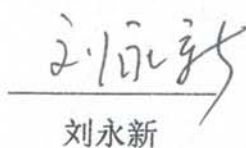 刘永新
刘永新